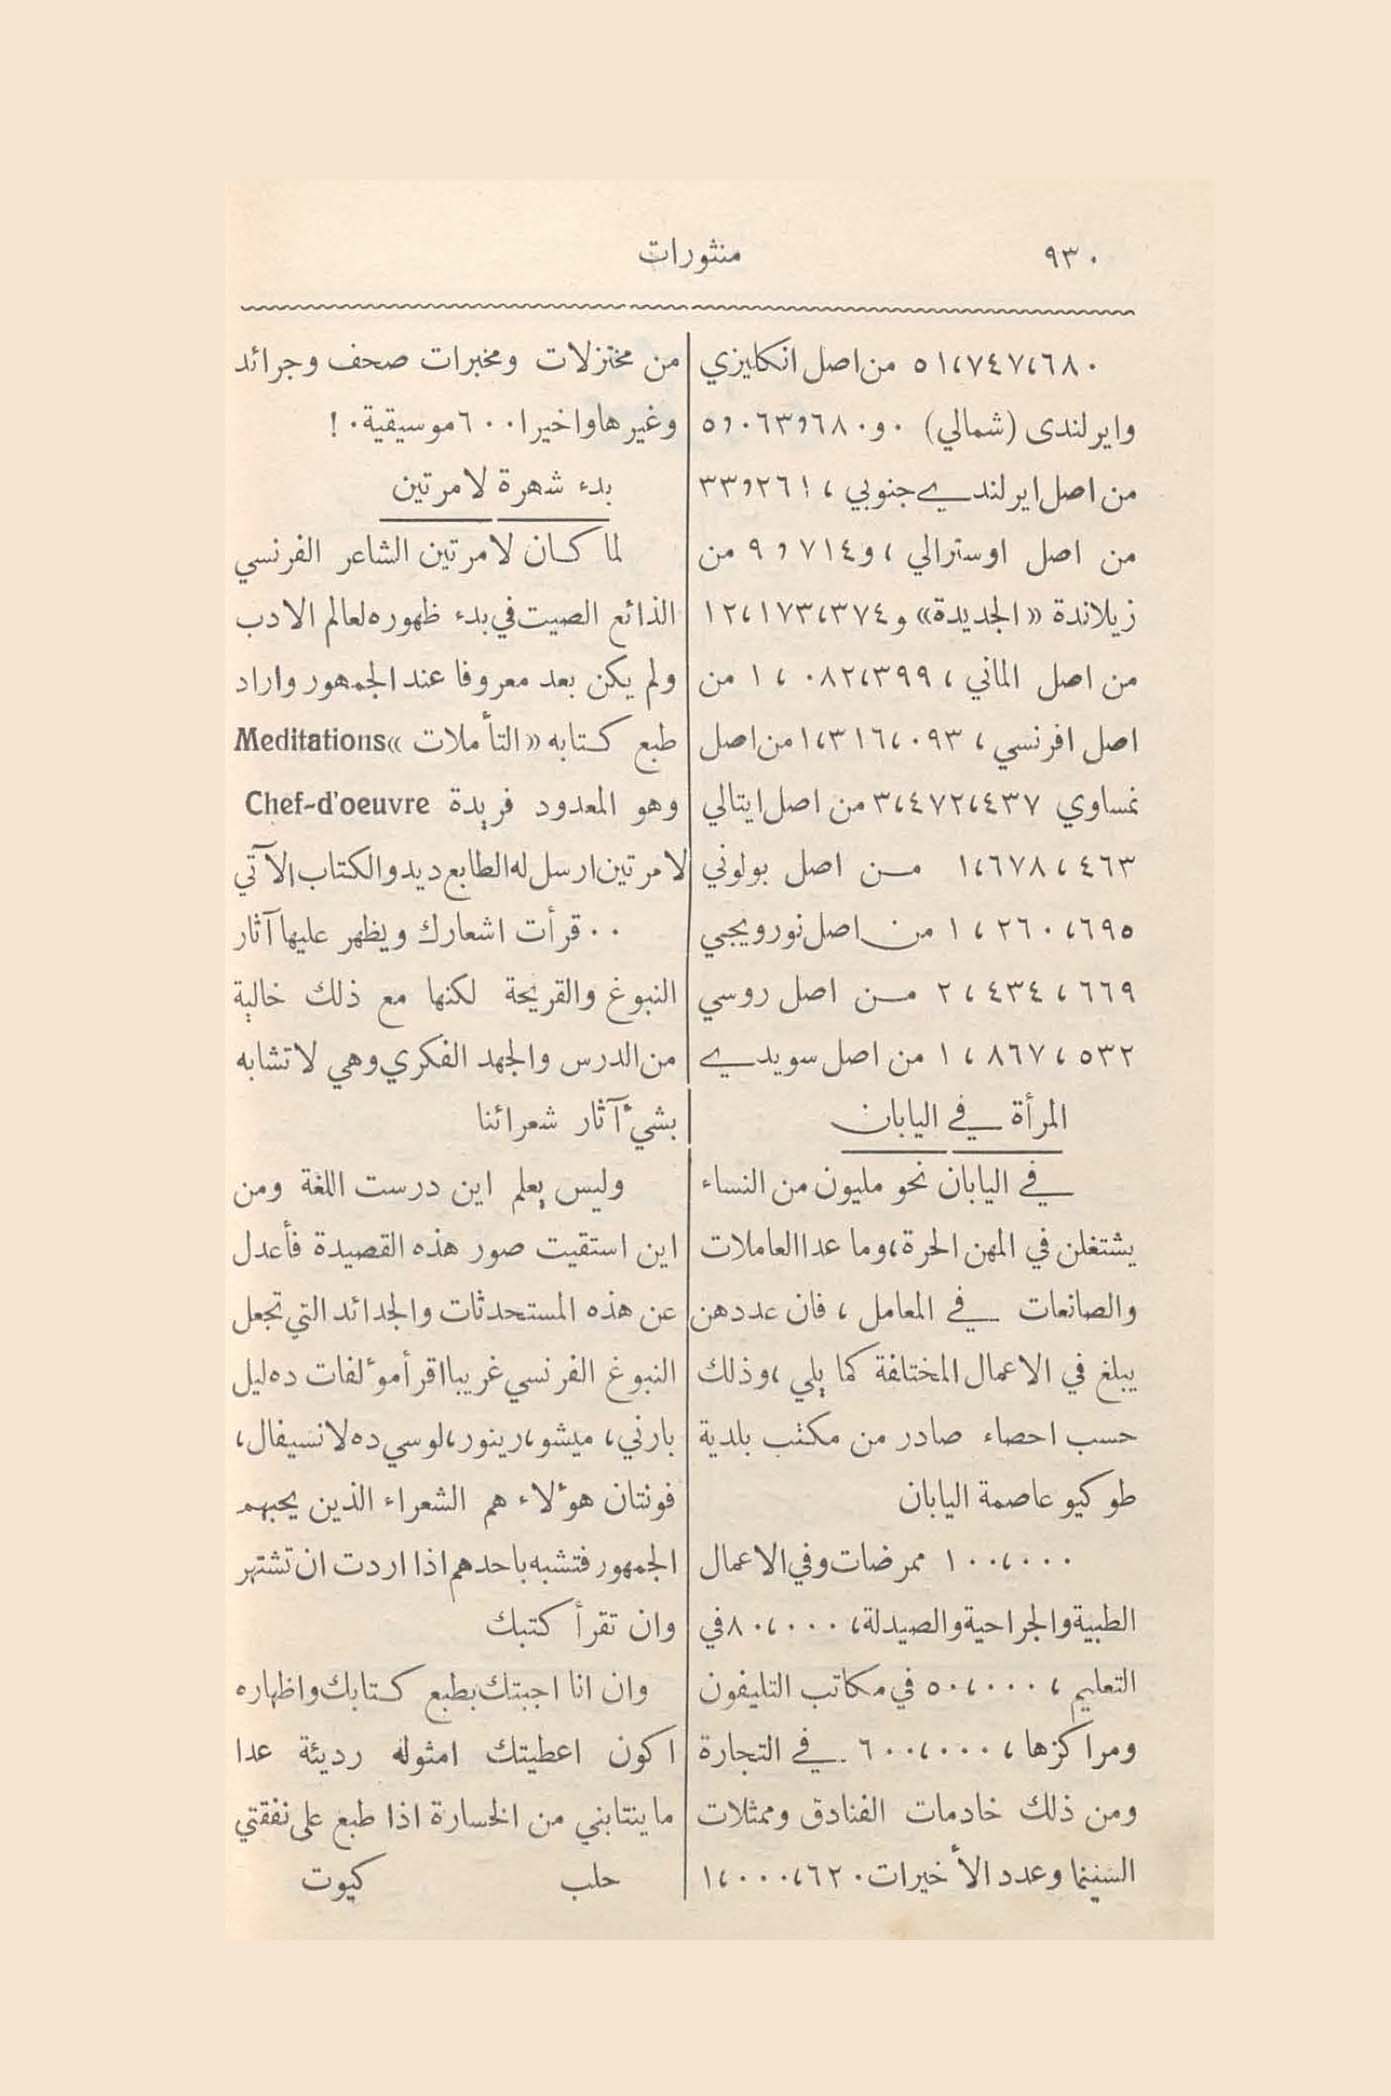 ٩٣٠
منثورات
٥١،٧٤٧،٦٨٠ من اصل انكليزي
وايرلندى (شمالي) ٠ و٥,٠٦٣,٦٨٠
من اصل ايرلندي جنوبي ، ٣٣,٢٦١
من اصل اوسترالي ، و٩,٧١٤ من
زيلاندة «الجديدة» و ١٢،١٧٣،٣٧٤
من اصل الماني ، ١،٠٨٢،٣٩٩ من
اصل افرنسي ، ١،٣١٦،٠٩٣ من اصل
نمساوي ٣،٤٧٢،٤٣٧ من اصل ايتالي
١،٦٧٨،٤٦٣ من اصل بولوني
١،٢٦٠،٦٩٥ من اصل نورويجي
٢،٤٣٤،٦٦٩ من اصل روسي
١،٨٦٧،٥٣٢ من اصل سويدي
المرأة في اليابان
في اليابان نحو مليون من النساء
يشتغلن في المهن الحرة، وما عدا العاملات
والصانعات في المعامل ، فان عددهن
يبلغ في الاعمال المختلفة كما يلي ، وذلك
حسب احصاء صادر من مكتب بلدية
طوكيو عاصمة اليابان
١٠٠،٠٠٠ ممرضات وفي الاعمال
الطبية والجراحية والصيدلة، ٨٠،٠٠٠ في
التعليم ، ٥٠،٠٠٠ في مكاتب التليفون
ومراكزها ، ٦٠٠،٠٠٠ في التجارة
ومن ذلك خادمات الفنادق وممثلات
السينما وعدد الأخيرات ١،٠٠٠،٦٢٠
من مختزلات ومخبرات صحف وجرائد
وغيرها واخيرا ٦٠٠ موسيقية ٠!
بدء شهرة لامرتين
لما كان لامرتين الشاعر الفرنسي
الذائع الصيت في بدء ظهوره لعالم الادب
ولم يكن بعد معروفا عند الجمهور واراد
طبع كتابه «التأملات» Meditations
وهو المعدود فريدة Chef-d'oeuvre
لامرتين ارسل له الطابع ديدو الكتاب الآتي
٠٠ قرأت اشعارك ويظهر عليها آثار
النبوغ والقريحة لكنها مع ذلك خالية
من الدرس والجهد الفكري وهي لا تشابه
بشيء آثار شعرائنا
وليس يعلم اين درست اللغة ومن
اين استقيت صور هذه القصيدة فأعدل
عن هذه المستحدثات والجدائد التي تجعل
النبوغ الفرنسي غريبا اقرأ موٴلفات ده ليل
بارني، ميشو، رينور، لوسي ده لانسيفال،
فونتان هوٴلاء هم الشعراء الذين يحبهم
الجمهور فتشبه باحدهم اذا اردت ان تشتهر
وان تقرأ كتبك
وان انا اجبتك بطبع كتابك واظهاره
اكون اعطيتك امثوله رديئة عدا
ما ينتابني من الخسارة اذا طبع على نفقتي
حلب كيوت